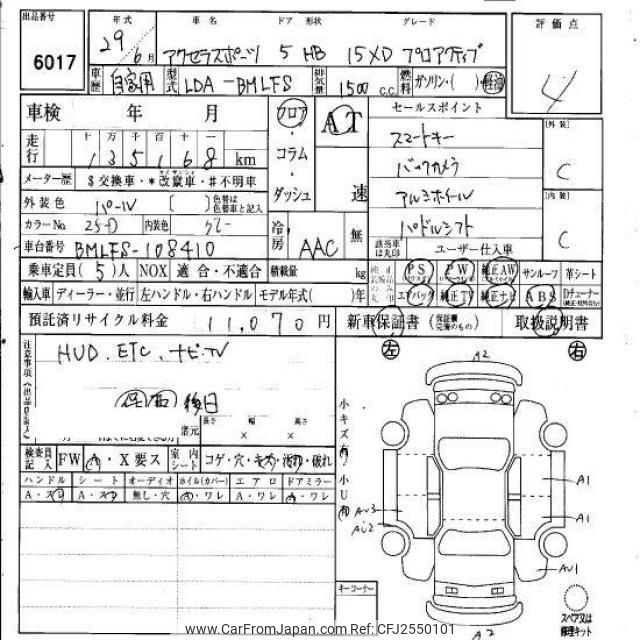 出品番号 年式 車名 ドア 形状 グレード 評価点
6017 29 6月 アクセラスポーツ 5 HB 15XD プロアクティブ 4
車歴 自家用 型式 LDA-BMLFS 排気量 1500 c.c. 燃料 ガソリン・( ) 軽油
車検 年 月 フロア AT セールスポイント
走行 十 万 千 百 十 一 135168 km ・コラム・ダッシュ 速 スマートキー [外装] C
メーター歴 $交換車・*改竄車・#不明車 バックカメラ
外装色 パール [ ] 色替は色替車と記入 アルミホイール [内装] C
カラーNo. 25-D 内装色 グレー 冷房 AAC 無 パドルシフト
車台番号 BMLFS-108410 該当車は丸印 ユーザー仕入車
乗車定員(5)人 NOX 適合・不適合 積載量 kg PS PW 純正AW サンルーフ 革シート
輸入車 ディーラー・並行 左ハンドル・右ハンドル モデル年式( )年 エアバッグ 純正TV 純正ナビ ABS Dチューナー
預託済リサイクル料金 11,070円 新車保証書 (保証欄完備のもの) 取扱説明書
注意事項(出品
HUD. ETC. ナビ.TV
後日
諸元 長さ 幅 高さ × ×
左 右
A2
小キズ有
小U有
AU3
AU2
A1
A1
AU1
A2
検査員記入 FW A・X要ス 室内シート コゲ・穴・キズ・汚れ・破れ
ハンドル シート オーディオ ホイル(カバー) エアロ ドアミラー
A・ス A・ス 無し・穴 A・ワレ A・ワレ A・ワレ
キーコーナー
スペア又は修理キット
www.CarFromJapan.com Ref: CFJ2550101